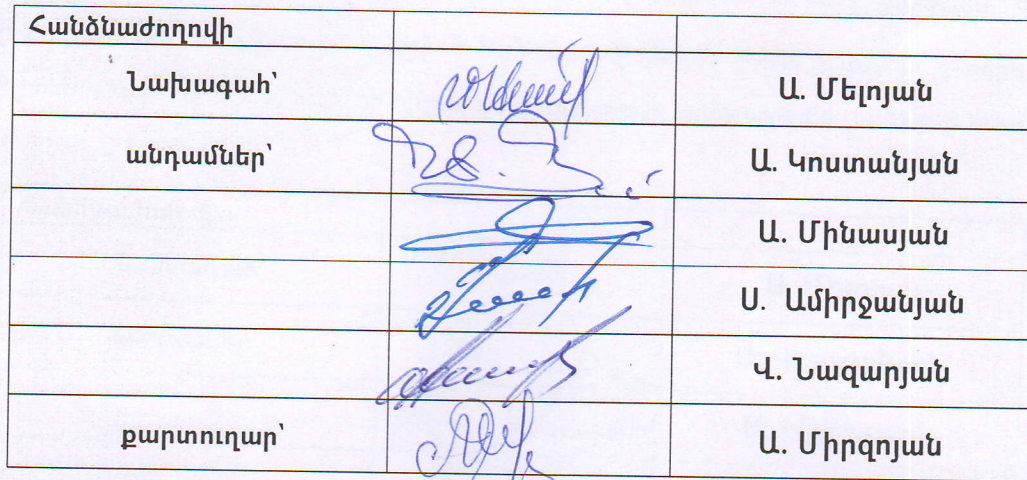 Հանձնաժողովի
Նախագահ՝ Ա. Մելոյան
անդամներ՝ Ա. Կոստանյան
Ա. Մինասյան
Ս. Ամիրջանյան
Վ. Նազարյան
քարտուղար՝ Ա. Միրզոյան